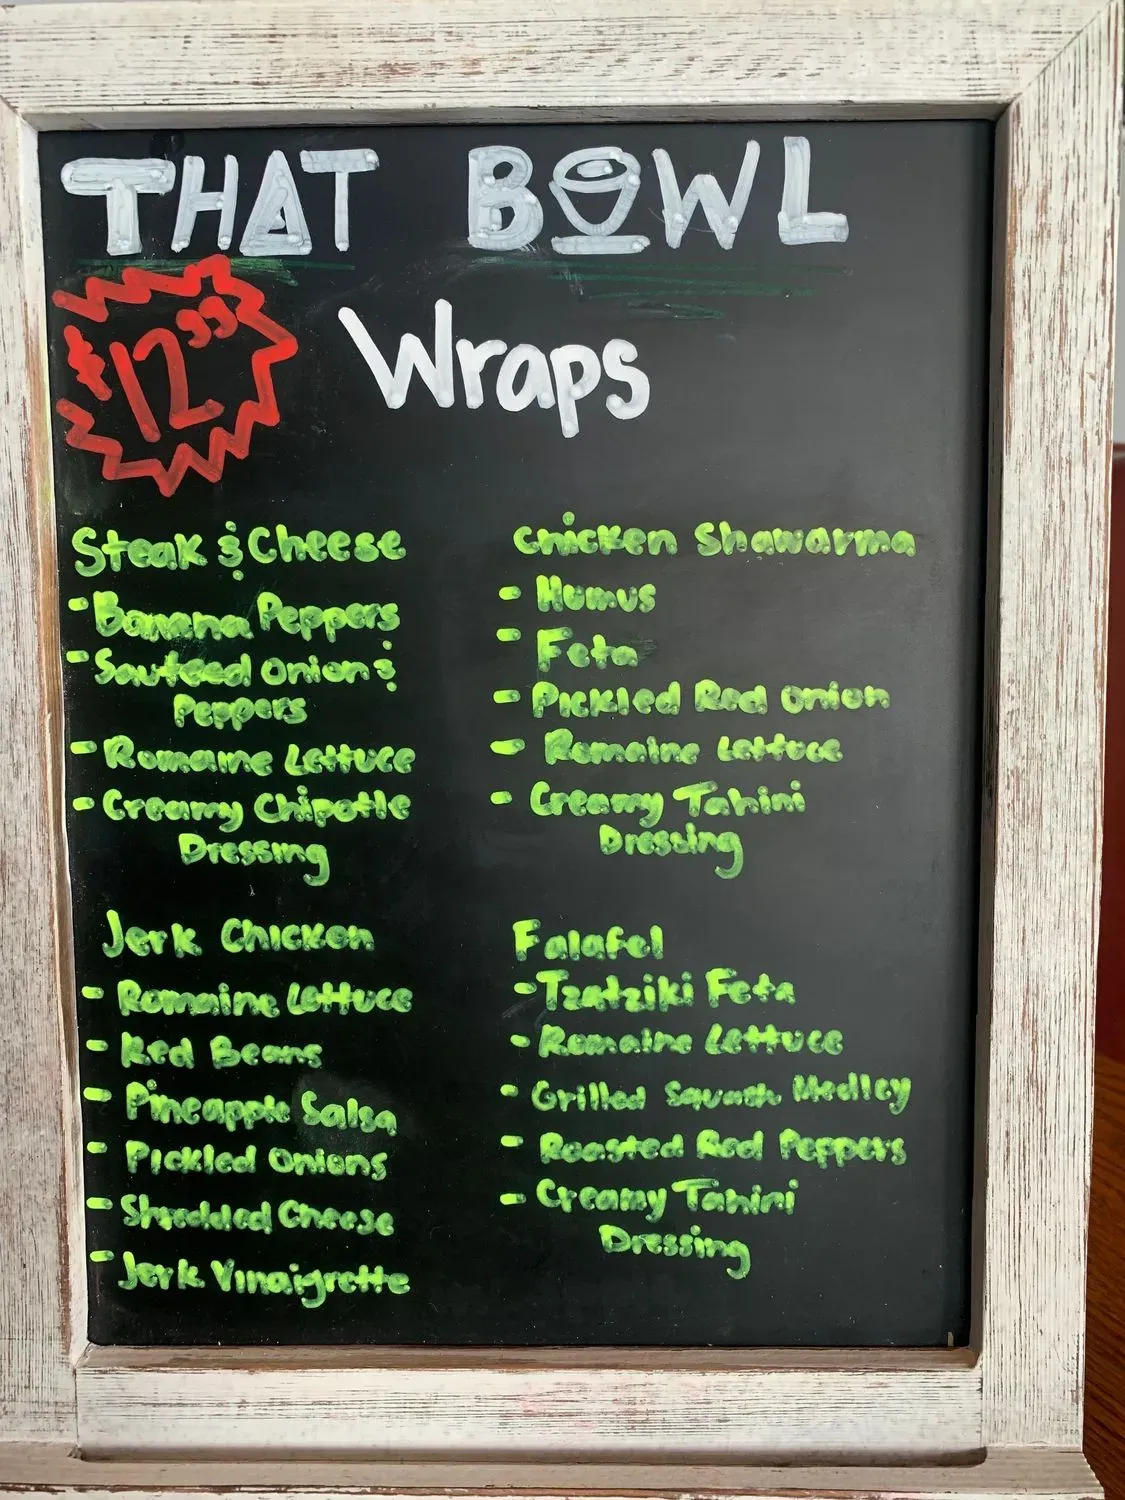 THAT BOWL
$12.99
Wraps
Steak & Cheese
- Banana Peppers
- Sauteed Onion &
Peppers
- Romaine Lettuce
- Creamy Chipotle
Dressing
Chicken Shawarma
- Humus
- Feta
- Pickled Red Onion
- Romaine Lettuce
- Creamy Tahini
Dressing
Jerk Chicken
- Romaine Lettuce
- Red Beans
- Pineapple Salsa
- Pickled Onions
- Shredded Cheese
- Jerk Vinaigrette
Falafel
- Tzatziki Feta
- Romaine Lettuce
- Grilled Squash Medley
- Roasted Red Peppers
- Creamy Tahini
Dressing